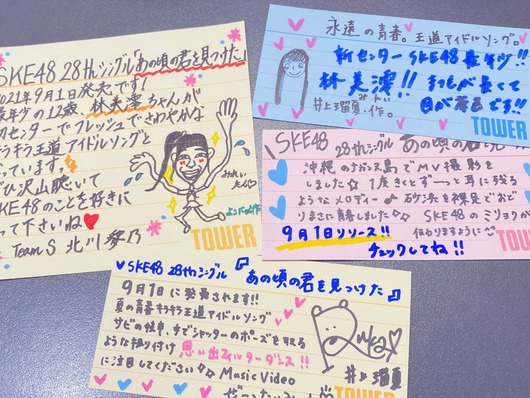 SKE48 28thシングル「あの頃の君を見つけた」
2021年9月1日発売です!
最年少の12歳、林美澪ちゃんが
初センターでフレッシュでさわやかな
キラキラ王道アイドルソングと
なっています。
ぜひ沢山聴いて
SKE48のことを好きに
なって下さいね
Team S 北川
TOWER
永遠の青春。王道アイドルソング。
新センターSKE48最年少!!
林美澪!! まつもが長くて
井上瑠夏・作。
TOWER
SKE48 28thシングル あの頃の君を見つけた
沖縄のナガンヌ島でMV撮影を
しました☆ 1度きくとずーっと耳に残る
ようなメロディー
SKE48の
9月1日リリース!!
伝わりますように
チェックしてね!!
TOWER
SKE48 28thシングル『あの頃の君を見つけた』
9月1日に発売されます!!
夏の青春キラキラ王道アイドルソング
サビの途中、シャッターのポーズを取る
ような振り付け 思い出フィルターダンス!!
に注目してください Music Video
Ruka
井上瑠夏
TOWER